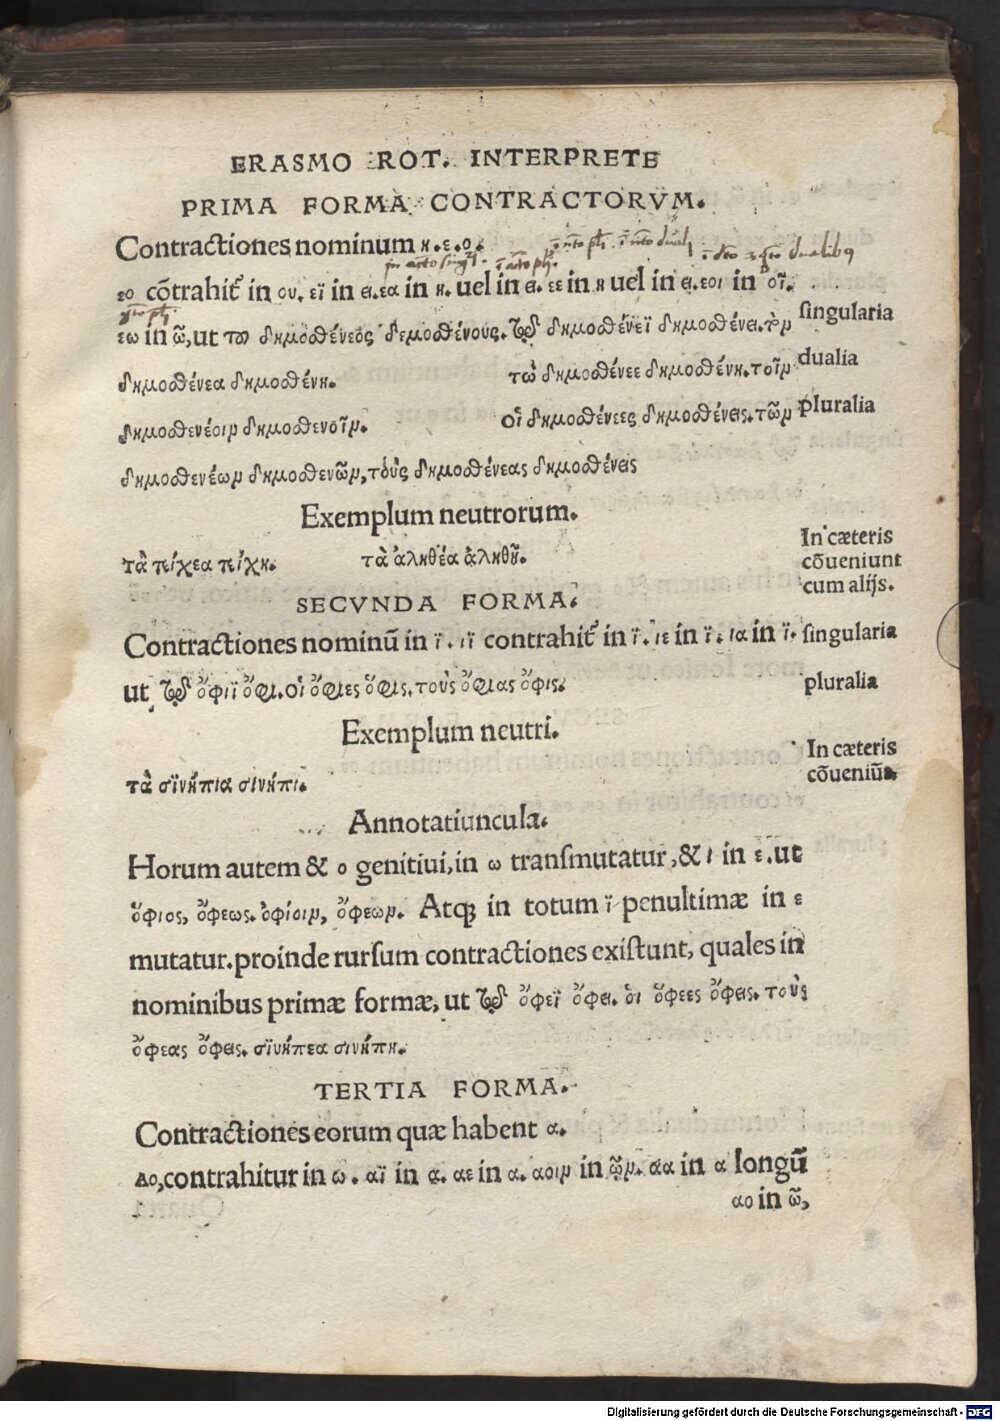 ERASMO ROT. INTERPRETE
PRIMA FORMA CONTRACTORVM.
Contractiones nominum η. ε. ο.
εο cōtrahit in ου. εϊ in ει. εα in η. uel in ει. εε in η uel in ει. εοι in οῖ.
εω in ῶ, ut τοῦ δημοσθένεος δεμοσθένους. τῷ δημοσθένεϊ δημοσθένει. τὸν
singularia
δημοσθένεα δημοσθένη. τὼ δημοσθένεε δημοσθένη. τοῖν
dualia
δημοσθενέοιν δημοσθενοῖν. οἱ δημοσθένεες δημοσθένεις. τῶν
pluralia
δημοσθενέων δημοσθενῶν, τοὺς δημοσθένεας δημοσθένεις
Exemplum neutrorum.
τὰ τείχεα τείχη. τὰ ἀληθέα ἀληθῆ.
In cæteris
cōueniunt
cum alijs.
SECVNDA FORMA.
Contractiones nominū in ϊ. ιϊ contrahit in ϊ. ιε in ϊ. ια in ϊ.
singularia
ut τῷ ὄφιϊ ὄφι. οἱ ὄφιες ὄφις. τοὺς ὄφιας ὄφις.
pluralia
Exemplum neutri.
τὰ σϊνήπια σινήπι.
In cæteris
cōueniūt.
Annotatiuncula.
Horum autem & ο genitiui, in ω transmutatur, & ι in ε. ut
ὄφιος, ὄφεως. ὀφίοιν, ὄφεων. Atq; in totum ϊ penultimæ in ε
mutatur. proinde rursum contractiones existunt, quales in
nominibus primæ formæ, ut τῷ ὄφεϊ ὄφει. οἱ ὄφεες ὄφεις. τοὺς
ὄφεας ὄφεις. σϊνήπεα σινήπη.
TERTIA FORMA.
Contractiones eorum quæ habent α.
αο, contrahitur in ω. αϊ in ᾳ. αε in α. αοιν in ῷν. αα in α longū
αο in ῶ,
Digitalisierung gefördert durch die Deutsche Forschungsgemeinschaft - DFG